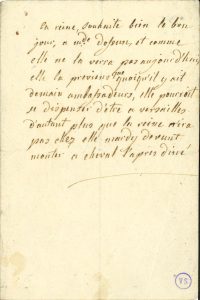 La reine, souhaite bien le bon
jour, a mde dossun, et comme
elle ne la verra pas aujourd'huy
elle la previens que quoiqu'il y ait
demain ambassadeurs, elle pourroit
se dispenser d'être a versailles
d'autant plus que la reine n'ira
pas chez elle mardy devant
monter a cheval l'apres diné